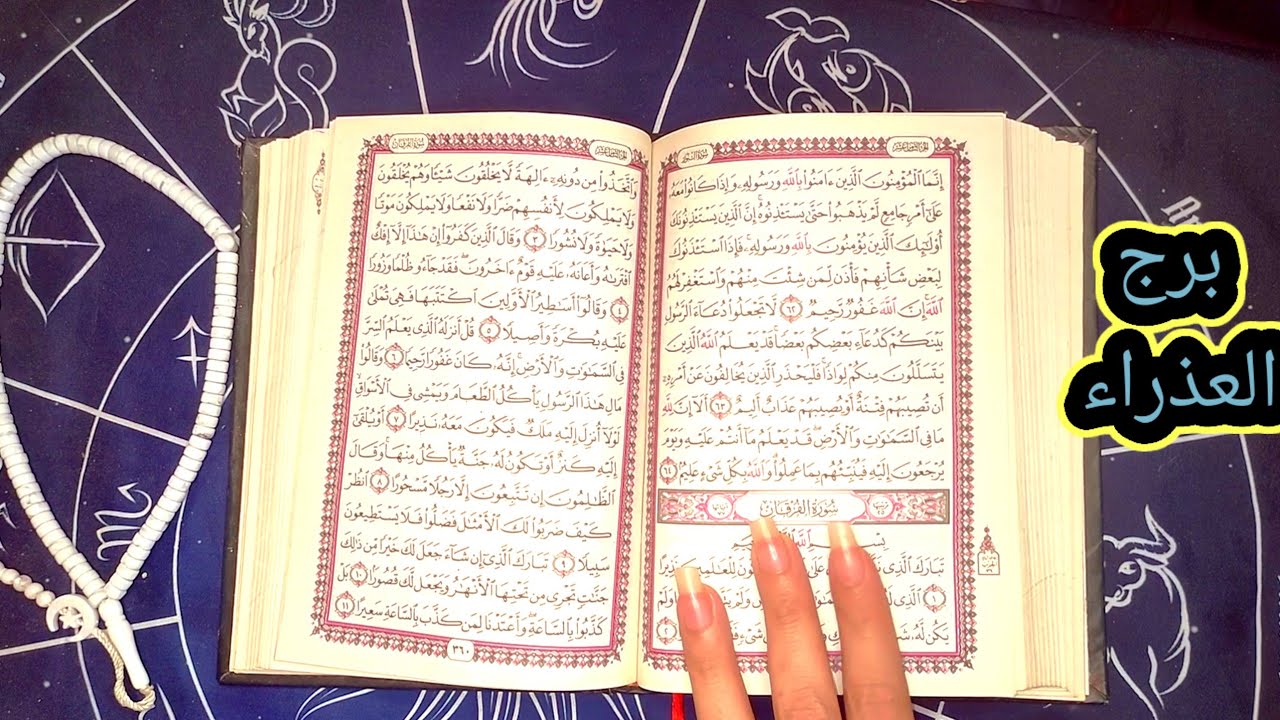 سورة النور
الجزء الثامن عشر
إِنَّمَا ٱلْمُؤْمِنُونَ ٱلَّذِينَ ءَامَنُوا۟ بِٱللَّهِ وَرَسُولِهِۦ وَإِذَا كَانُوا۟ مَعَهُۥ
عَلَىٰٓ أَمْرٍ جَامِعٍ لَّمْ يَذْهَبُوا۟ حَتَّىٰ يَسْتَـْٔذِنُوهُ إِنَّ ٱلَّذِينَ يَسْتَـْٔذِنُونَكَ
أُو۟لَـٰٓئِكَ ٱلَّذِينَ يُؤْمِنُونَ بِٱللَّهِ وَرَسُولِهِۦ فَإِذَا ٱسْتَـْٔذَنُوكَ
لِبَعْضِ شَأْنِهِمْ فَأْذَن لِّمَن شِئْتَ مِنْهُمْ وَٱسْتَغْفِرْ لَهُمُ
ٱللَّهَ إِنَّ ٱللَّهَ غَفُورٌ رَّحِيمٌ ٦٢ لَّا تَجْعَلُوا۟ دُعَآءَ ٱلرَّسُولِ
بَيْنَكُمْ كَدُعَآءِ بَعْضِكُم بَعْضًا قَدْ يَعْلَمُ ٱللَّهُ ٱلَّذِينَ
يَتَسَلَّلُونَ مِنكُمْ لِوَاذًا فَلْيَحْذَرِ ٱلَّذِينَ يُخَالِفُونَ عَنْ أَمْرِهِۦٓ
أَن تُصِيبَهُمْ فِتْنَةٌ أَوْ يُصِيبَهُمْ عَذَابٌ أَلِيمٌ ٦٣ أَلَآ إِنَّ لِلَّهِ
مَا فِى ٱلسَّمَـٰوَٰتِ وَٱلْأَرْضِ قَدْ يَعْلَمُ مَآ أَنتُمْ عَلَيْهِ وَيَوْمَ
يُرْجَعُونَ إِلَيْهِ فَيُنَبِّئُهُم بِمَا عَمِلُوا۟ وَٱللَّهُ بِكُلِّ شَىْءٍ عَلِيمٌ ٦٤
سُورَةُ الْفُرْقَان
بِسْمِ ٱللَّهِ
تَبَارَكَ ٱلَّذِى عَلَىٰ لِلْعَـٰلَمِينَ نَذِيرًا
١ ٱلَّذِى لَهُۥ وَلَمْ
يَكُن لَّهُۥ شَىْءٍ ٢
سورة الفرقان
الجزء الثامن عشر
وَٱتَّخَذُوا۟ مِن دُونِهِۦٓ ءَالِهَةً لَّا يَخْلُقُونَ شَيْـًٔا وَهُمْ يُخْلَقُونَ
وَلَا يَمْلِكُونَ لِأَنفُسِهِمْ ضَرًّا وَلَا نَفْعًا وَلَا يَمْلِكُونَ مَوْتًا
وَلَا حَيَوٰةً وَلَا نُشُورًا ٣ وَقَالَ ٱلَّذِينَ كَفَرُوٓا۟ إِنْ هَـٰذَآ إِلَّآ إِفْكٌ
ٱفْتَرَىٰهُ وَأَعَانَهُۥ عَلَيْهِ قَوْمٌ ءَاخَرُونَ فَقَدْ جَآءُو ظُلْمًا وَزُورًا
٤ وَقَالُوٓا۟ أَسَـٰطِيرُ ٱلْأَوَّلِينَ ٱكْتَتَبَهَا فَهِىَ تُمْلَىٰ
عَلَيْهِ بُكْرَةً وَأَصِيلًا ٥ قُلْ أَنزَلَهُ ٱلَّذِى يَعْلَمُ ٱلسِّرَّ
فِى ٱلسَّمَـٰوَٰتِ وَٱلْأَرْضِ إِنَّهُۥ كَانَ غَفُورًا رَّحِيمًا ٦ وَقَالُوا۟
مَالِ هَـٰذَا ٱلرَّسُولِ يَأْكُلُ ٱلطَّعَامَ وَيَمْشِى فِى ٱلْأَسْوَاقِ
لَوْلَآ أُنزِلَ إِلَيْهِ مَلَكٌ فَيَكُونَ مَعَهُۥ نَذِيرًا ٧ أَوْ يُلْقَىٰٓ
إِلَيْهِ كَنزٌ أَوْ تَكُونُ لَهُۥ جَنَّةٌ يَأْكُلُ مِنْهَا وَقَالَ
ٱلظَّـٰلِمُونَ إِن تَتَّبِعُونَ إِلَّا رَجُلًا مَّسْحُورًا ٨ ٱنظُرْ
كَيْفَ ضَرَبُوا۟ لَكَ ٱلْأَمْثَـٰلَ فَضَلُّوا۟ فَلَا يَسْتَطِيعُونَ
سَبِيلًا ٩ تَبَارَكَ ٱلَّذِىٓ إِن شَآءَ جَعَلَ لَكَ خَيْرًا مِّن ذَٰلِكَ
جَنَّـٰتٍ تَجْرِى مِن تَحْتِهَا ٱلْأَنْهَـٰرُ وَيَجْعَل لَّكَ قُصُورًا ١٠ بَلْ
كَذَّبُوا۟ بِٱلسَّاعَةِ وَأَعْتَدْنَا لِمَن كَذَّبَ بِٱلسَّاعَةِ سَعِيرًا ١١
٣٦٠
برج
العذراء